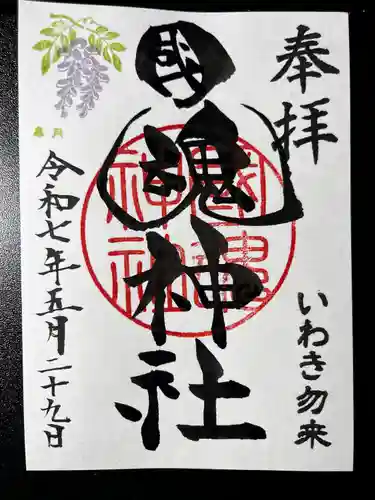 奉拝
いわき勿来
國魂神社
國魂神社
皐月
令和七年五月二十九日